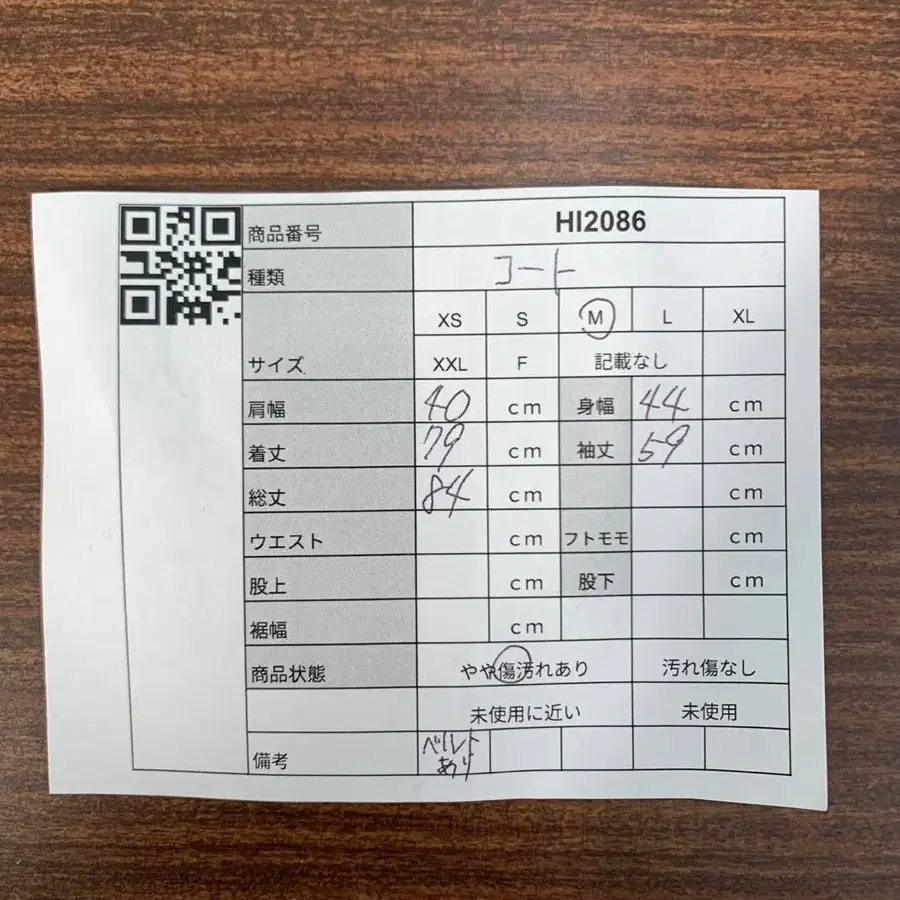 商品番号 HI2086
種類 コート
XS S M L XL
サイズ XXL F 記載なし
肩幅 40 cm 身幅 44 cm
着丈 79 cm 袖丈 59 cm
総丈 84 cm cm
ウエスト cm フトモモ cm
股上 cm 股下 cm
裾幅 cm
商品状態 やや傷汚れあり 汚れ傷なし
未使用に近い 未使用
備考 ベルト
あり